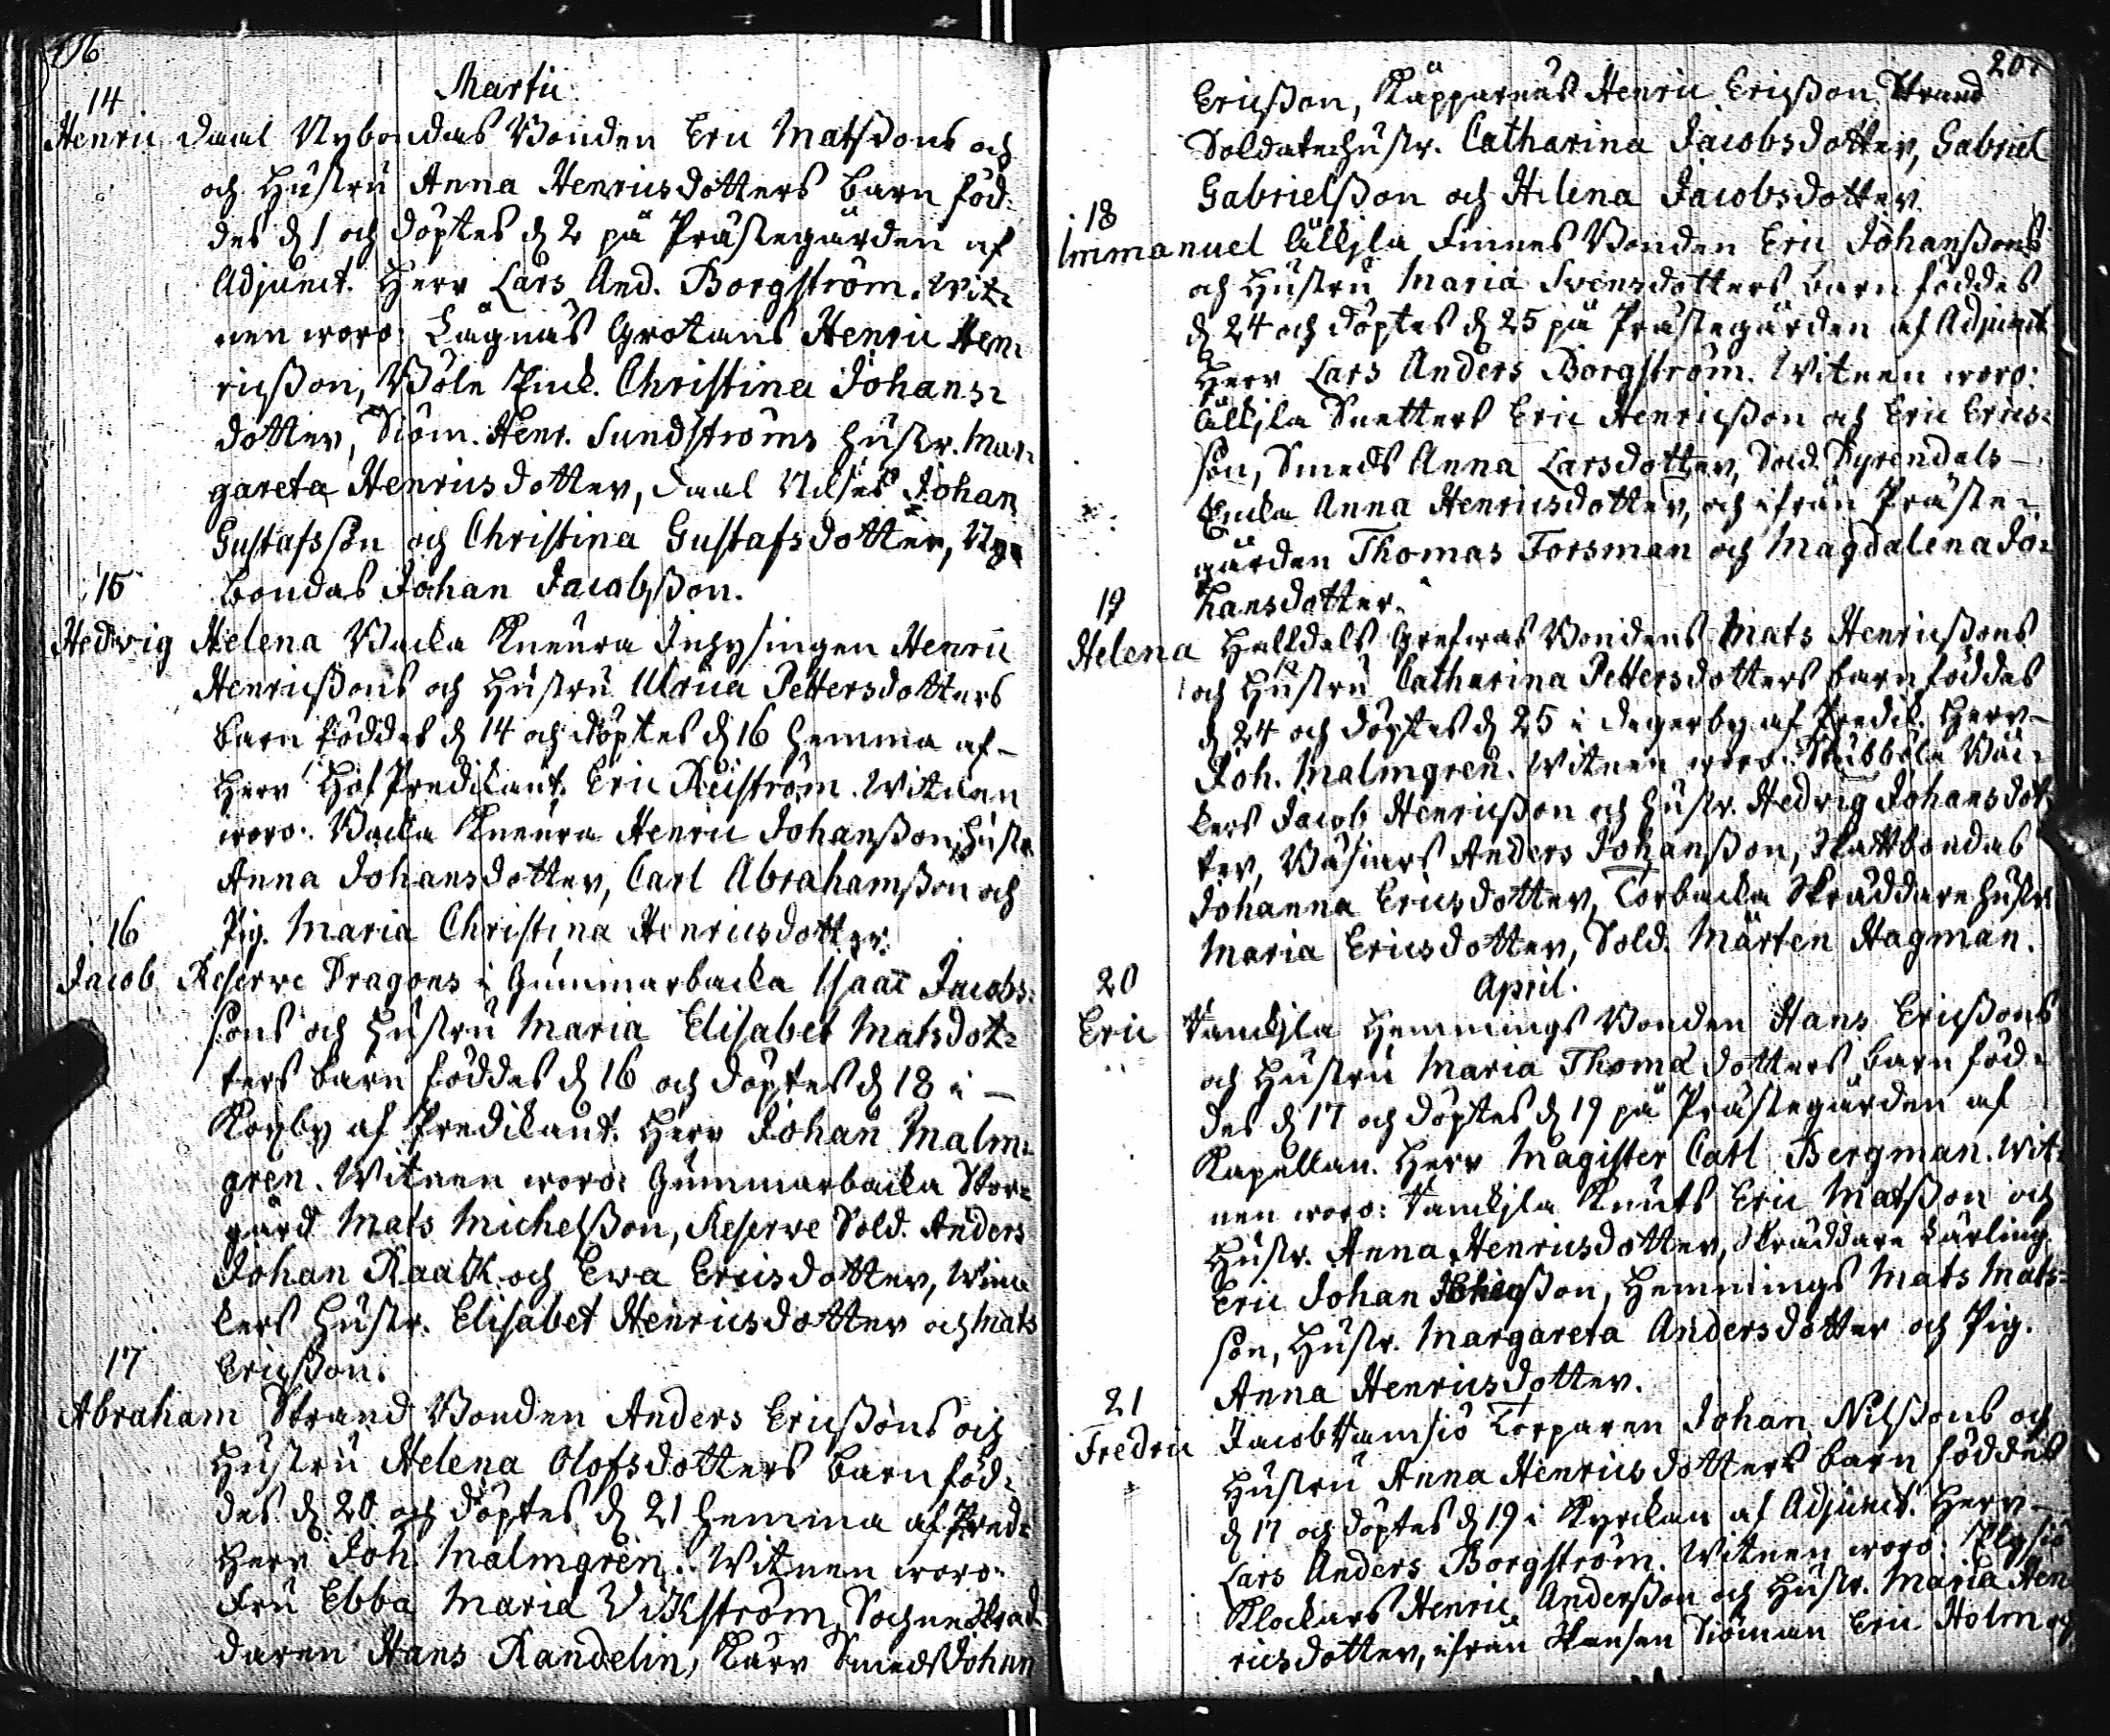 Martii
14
Henric Daal Nybondas Bonden Eric Matssons och
och Hustru Anna Henricsdotters barn föd-
des d. 1 och döptes d. 2 på Prästegården af
Adjunct. Herr Lars And. Borgström. Wit-
nen woro: Lågnäs Grotans Henric Hen-
ricsson, Böle Enck. Christina Johans-
dotter, Siöm. Henr. Sundströms hustr. Mar-
gareta Henricsdotter, Daal Nilses Johan
Gustafsson och Christina Gustafsdotter, Ny-
bondas Johan Jacobsson.
15
Hedvig Helena Backa Knevra Inhysingen Henric
Henricssons och Hustru Ulrica Pettersdotters
barn föddes d. 14 och döptes d. 16 hemma af
Herr HofPredikant. Eric Reiström. Witnen
woro: Backa Knevra Henric Johansson, hustr.
Anna Johansdotter, Carl Abrahamsson och
Pig. Maria Christina Henricsdotter.
16
Jacob Reserve Dragons i Gummarbacka Isaac Jacobs-
sons och Hustru Maria Elisabet Matsdot-
ters barn föddes d. 16 och döptes d. 18 i
Koxby af Predikant. Herr Johan Malm-
gren. Witnen woro: Gummarbacka Stor-
gård Mats Michelsson, Reserve Sold. Anders
Johan Raask och Ewa Ericsdotter,
kers Hustr. Elisabet Henricsdotter och Mats
Ericsson.
17
Abraham Strand Bonden Anders Ericssons och
Hustru Helena Olofsdotters barn föd-
des d. 20 och döptes d. 21 hemma af Pred.
Herr Joh. Malmgren. Witnen woro:
Fru Ebba Maria Wikström, Sochne Skräd-
daren Hans Randelin, Kärr Smeds Johan
207
Ericsson, Käpparnäs Henric Ericsson, Strand
Soldatehustr. Catharina Jacobsdotter, Gabriel
Gabrielsson och Helena Jacobsdotter.
18
Immanuel Älkjla Finnes Bonden Eric Johanssons
och Hustru Maria Svensdotters barn föddes
d. 24 och döptes d. 25 på Prästegården af Adjunct
Herr Lars Anders Borgström. Witnen woro:
Älkjla Snetters Eric Henricsson och Eric Erics-
son, Smeds Anna Larsdotter, Sold. Dyrendals
Encka Anna Henricsdotter, och ifrån Präste-
gården Thomas Forsman och Magdalena Jo-
hansdotter.
19
Helena Halldals Grefwas Bondens Mats Henricssons
och Hustru Catharina Pettersdotters barn föddes
d. 24 och döptes d. 25 i Degerby af Predik. Herr
Joh. Malmgren. Witnen woro: Stubböle Bäc-
kers Jacob Henricsson och hustr. Hedvig Johansdot-
ter, Bäsiars Anders Johansson, Skattbondas
Johanna Ericsdotter, Torbacka Skräddare hustr.
Maria Ericsdotter, Sold. Mårten Hagman.
April.
20
Eric Hemmings Bonden Hans Ericssons
och Hustru Maria Thomædotters barn föd-
des d. 17 och döptes d. 19 på Prästegården af
Kapellan. Herr Magister Carl Bergman. Wit-
nen woro: Knuts Eric Matsson och
Hustr. Anna Henricsdotter, Skräddare Lärling.
Eric Johan, Hemmings Mats Mats-
son, Hustr. Margareta Andersdotter och Pig.
Anna Henricsdotter.
21
Fredric Jacob Torparen Johan Nilssons och
Hustru Anna Henricsdotters barn föddes
d. 17 och döptes d. 19 i Kyrckan af Adjunct. Herr
Lars Anders Borgström. Witnen woro: Elgsiö
Klockars Henric Andersson och Hustr. Maria Hen-
ricsdotter, ifrån Skansen Siöman Eric Holm och